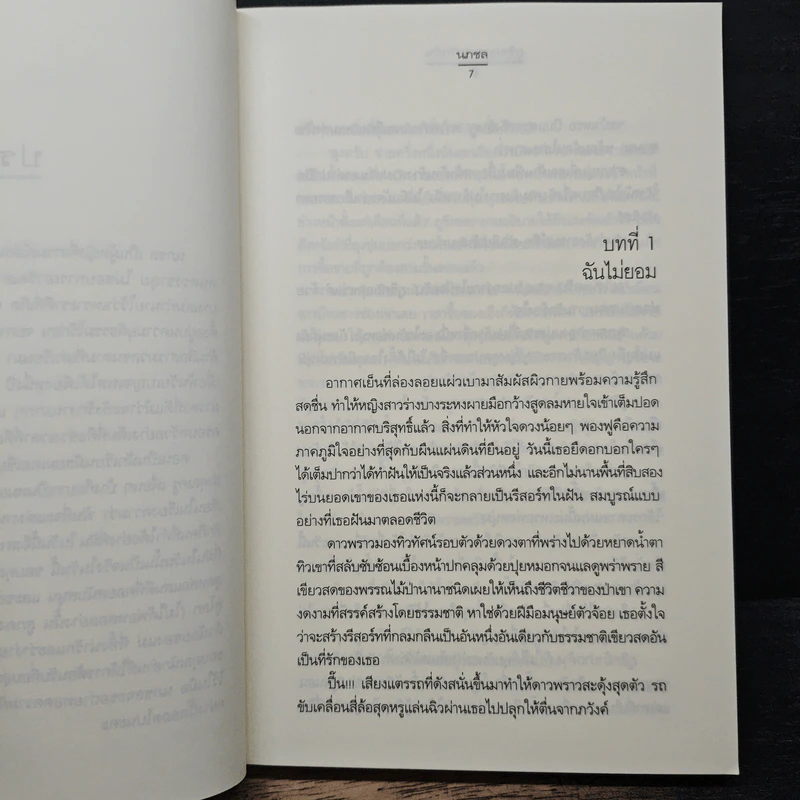 นภชล
7
บทที่ 1
ฉันไม่ยอม
อากาศเย็นที่ล่องลอยแผ่วเบามาสัมผัสผิวกายพร้อมความรู้สึก
สดชื่น ทำให้หญิงสาวร่างบางระหงผายมือกว้างสูดลมหายใจเข้าเต็มปอด
นอกจากอากาศบริสุทธิ์แล้ว สิ่งที่ทำให้หัวใจดวงน้อยๆ พองฟูคือความ
ภาคภูมิใจอย่างที่สุดกับผืนแผ่นดินที่ยืนอยู่ วันนี้เธอยืดอกบอกใครๆ
ได้เต็มปากว่าได้ทำฝันให้เป็นจริงแล้วส่วนหนึ่ง และอีกไม่นานพื้นที่สิบสอง
ไร่บนยอดเขาของเธอแห่งนี้ก็จะกลายเป็นรีสอร์ทในฝัน สมบูรณ์แบบ
อย่างที่เธอฝันมาตลอดชีวิต
ดาวพราวมองทิวทัศน์รอบตัวด้วยดวงตาที่พร่างไปด้วยหยาดน้ำตา
ทิวเขาที่สลับซับซ้อนเบื้องหน้าปกคลุมด้วยปุยหมอกจนแลดูพร่าพราย สี
เขียวสดของพรรณไม้นานาชนิดเผยให้เห็นถึงชีวิตชีวาของป่าเขา ความ
งดงามที่สรรค์สร้างโดยธรรมชาติ หาใช่ด้วยฝีมือมนุษย์ตัวจ้อย เธอตั้งใจ
ว่าจะสร้างรีสอร์ทที่กลมกลืนเป็นอันหนึ่งอันเดียวกับธรรมชาติเขียวสดอัน
เป็นที่รักของเธอ
ปี๊น!!! เสียงแตรรถที่ดังสนั่นขึ้นมาทำให้ดาวพราวสะดุ้งสุดตัว รถ
ขับเคลื่อนสี่ล้อสุดหรูแล่นฉิวผ่านเธอไปปลุกให้ตื่นจากภวังค์